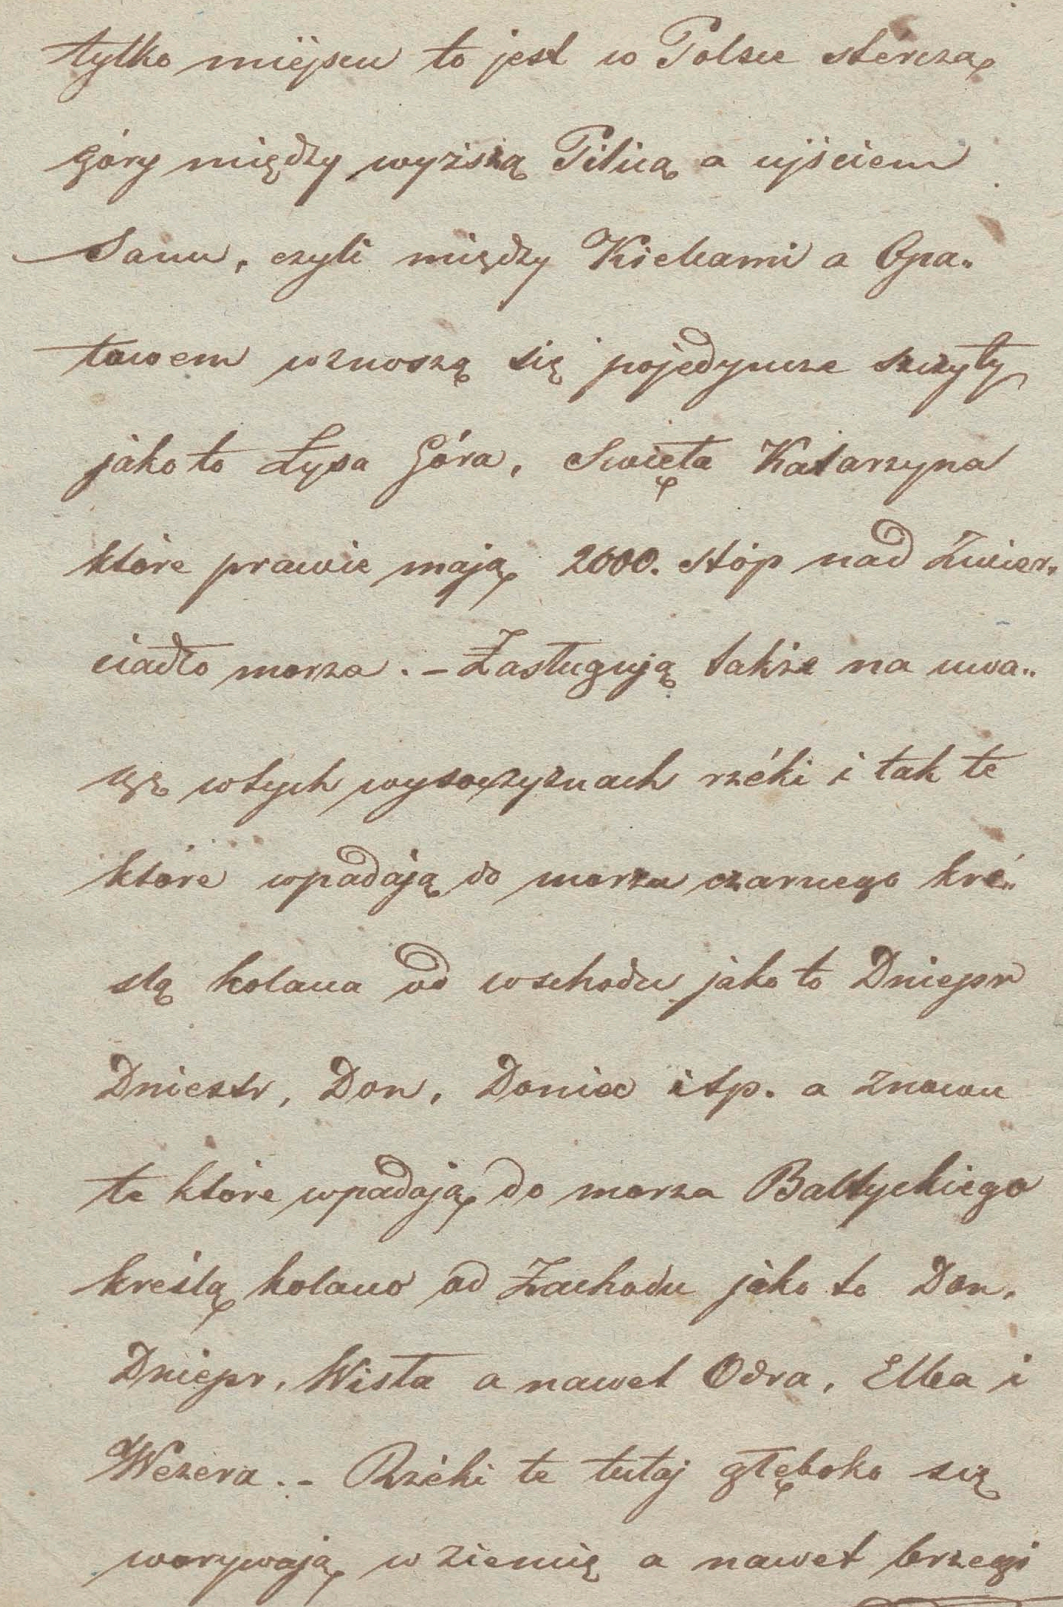 tylko miéjscu to jest w Polsce stérczą
góry między wyższą Pilicą a ujściem
Sanu, czyli między Kielcami a Opa-
towem wznoszą się pojedyncze szczyty
jako to Łysa Góra, Swięta Katarzyna
które prawie mają 2000. stóp nad Zwier-
ciadło morza. – Zasługują także na uwa-
gę wtych wysoczyznach rzéki i tak te
które wpadają do morza czarnego kré-
slą kolana od wschodu jako to Dniepr
Dniestr, Don, Doniec itp. a znowu
te które wpadają do morza Baltyckiego
kreślą kolano od Zachodu jako to Don,
Dniepr, Wisła a nawet Odra, Elba i
Wezera. – Rzéki te tutaj głęboko się
worywają w ziemię a nawet brzegi